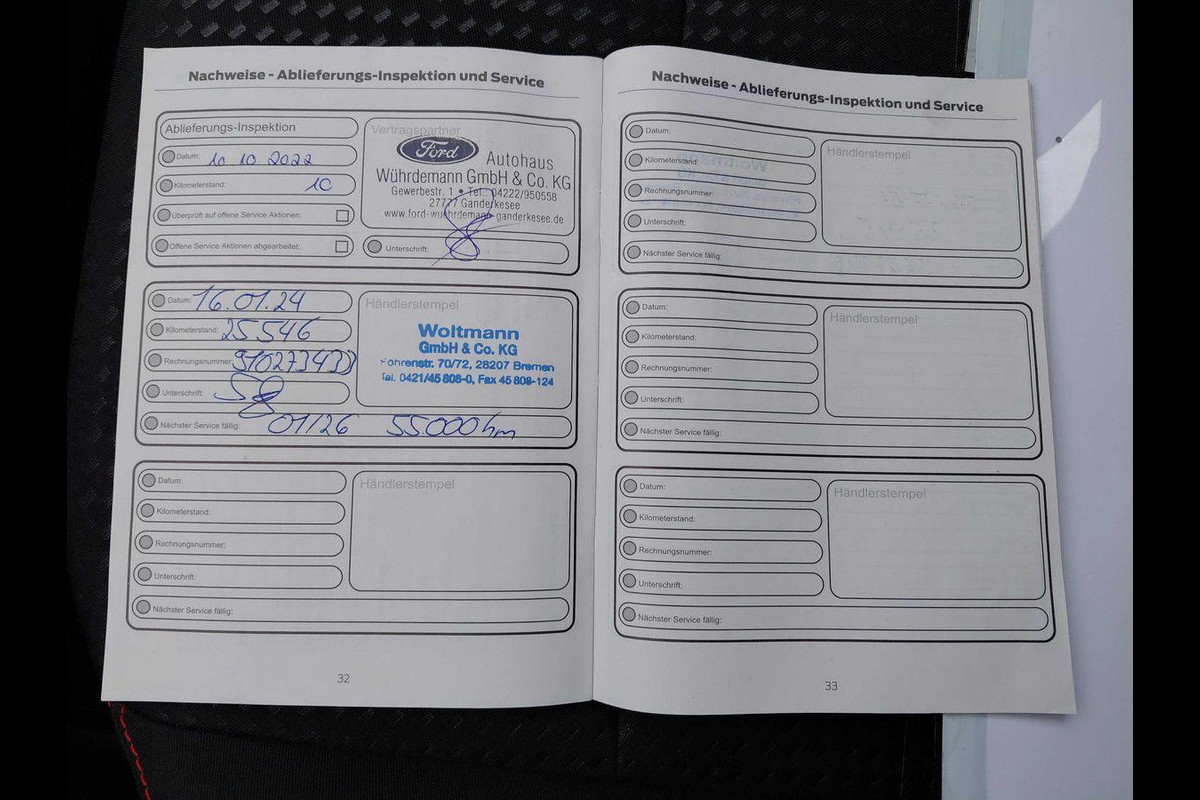 Nachweise - Ablieferungs-Inspektion und Service
Ablieferungs-Inspektion
Datum: 10 10 2022
Kilometerstand: 10
Überprüft auf offene Service Aktionen:
Offene Service Aktionen abgearbeitet:
Vertragspartner
Ford
Autohaus
Würdemann GmbH & Co. KG
Gewerbestr. 1 • Tel.: 04222/950558
27777 Ganderkesee
www.ford-wuehrdemann-ganderkesee.de
Unterschrift:
Datum: 16.01.24
Kilometerstand: 25546
Rechnungsnummer:
Unterschrift:
Nächster Service fällig: 01/26 55.000 km
Händlerstempel
Woltmann
GmbH & Co. KG
Föhrenstr. 70/72, 28207 Bremen
Tel. 0421/45 808-0, Fax 45 808-124
Datum:
Kilometerstand:
Rechnungsnummer:
Unterschrift:
Nächster Service fällig:
Händlerstempel
32
Nachweise - Ablieferungs-Inspektion und Service
Datum:
Kilometerstand:
Rechnungsnummer:
Unterschrift:
Nächster Service fällig:
Händlerstempel
Datum:
Kilometerstand:
Rechnungsnummer:
Unterschrift:
Nächster Service fällig:
Händlerstempel
Datum:
Kilometerstand:
Rechnungsnummer:
Unterschrift:
Nächster Service fällig:
Händlerstempel
33